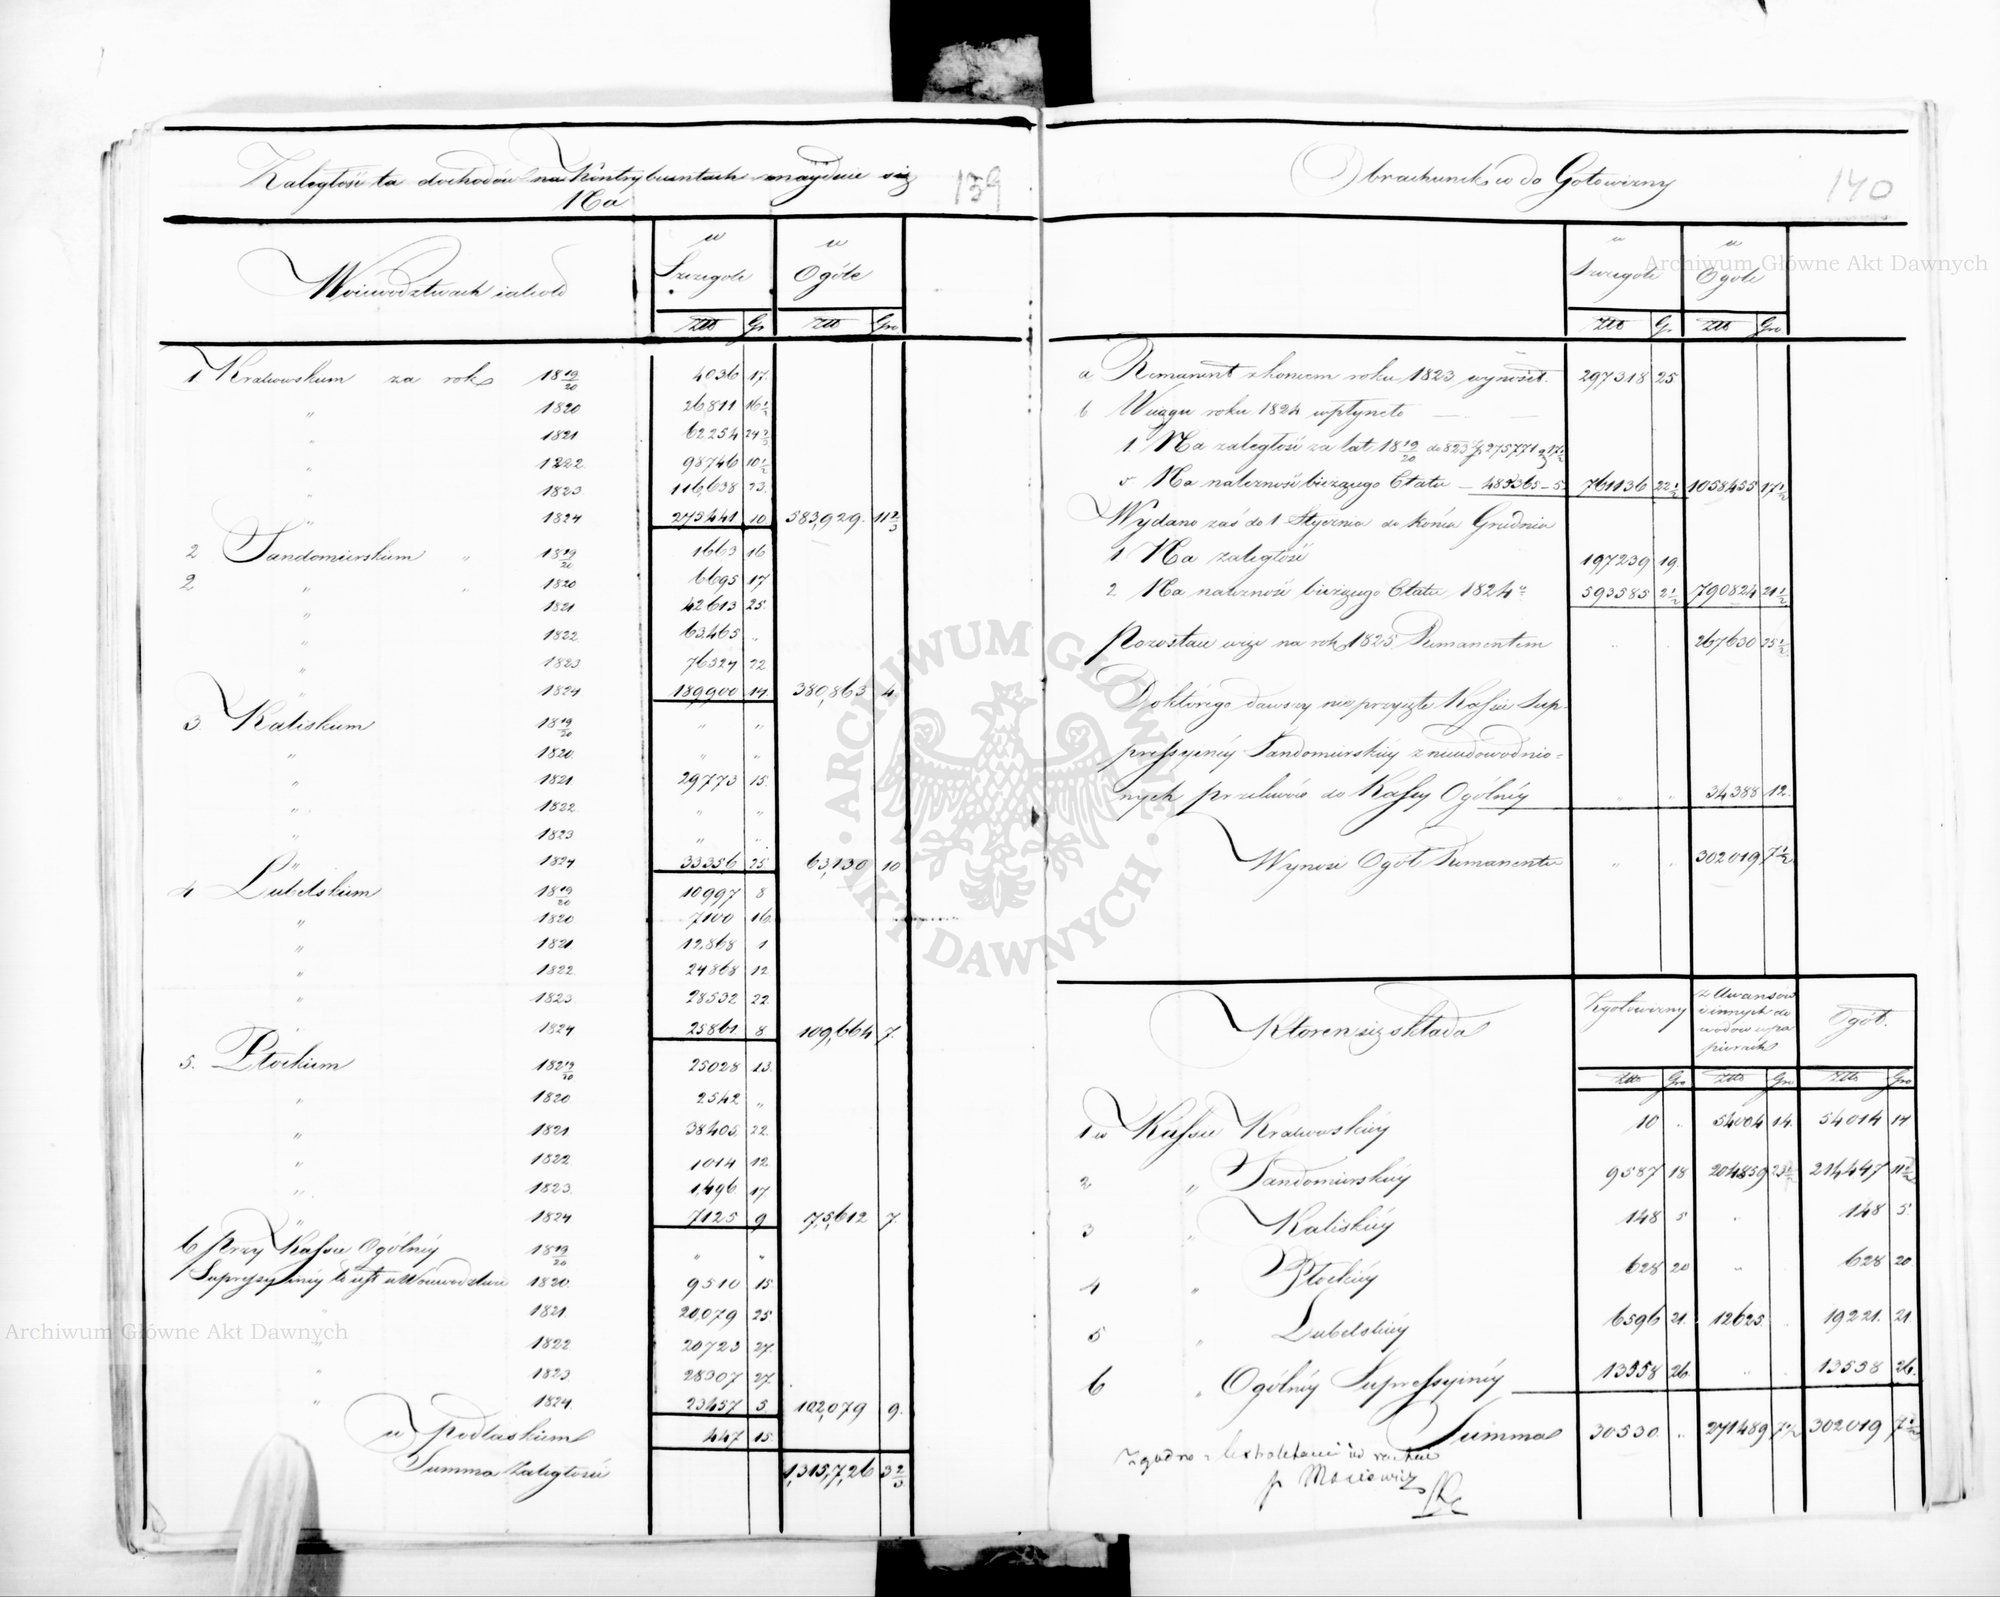 Zaległość ta dochodów na Kontrybuentach znayduie się
Na
139
Woiewodztwach iakoto
w Szczegole
w Ogóle
Złt Gr Złt Gro
1. Krakowskiem za rok 18 19/20 4036 17.
" 1820 26811 16 1/2
" 1821 62254 24 2/3
" 1822 98746 10 1/2
" 1823 116638 23.
" 1824 275441 10. 583,929. 11 2/3
2 Sandomirskiem " 18 19/20 1663 16
2 " " 1820 6695 17
" 1821 42613 25.
" 1822 63,465 "
" 1823 76524 22
" 1824 189,900 14. 380,863 4.
3. Kaliskiem 18 19/20 " "
" 1820. " "
" 1821. 29773 15.
" 1822. " "
" 1823 " "
" 1824 33356 25 63,130 10
4 Lubelskiem 18 19/20 10997 8
" 1820 7100 16.
" 1821 12,868 1.
" 1822. 24868 12
" 1823. 28532 22
" 1824 25861 8 109,664 7.
5. Płockiem 18 19/20 25028 13.
" 1820 2542 "
" 1821. 38405. 22.
" 1822 1014 12
" 1823. 1,496 17
" 1824 7125 9 75,612 7.
6 przy Kassie Ogólnéy 18 19/20 " "
Supressyinéy w Woiewodztwie 1820. 9510 15
" 1821. 20,079 25
" 1822. 20723 27.
" 1823 28307 27.
" 1824. 23457 5. 102,079 9.
w Podlaskiem 447 15.
Summa Zaległości 1,315,726 3 2/3
Obrachunek co do Gotowizny
140
w Szczegole
w Ogóle
Złt Gr Złt Gro
a Remanent z końcem roku 1823 wynosił. 297318 25.
b W ciągu roku 1824 wpłynęło
1 Na zaległość za lat 18 19/20 do 823 zł 275771 gr 17 1/2
2 Na należność bieżącego Etatu 485365 5. 761136 22 1/2 1058455 17 1/2
Wydano zaś do 1 Stycznia do końca Grudnia
1. Na zaległość 197239 19.
2 Na należność bieżącego Etatu 1824 593585 2 1/2 790824 21 1/2
Pozostaie więc na rok 1825 Remanentem 267630 25 1/2
Doktórego dawszy nieprzyięte Kassie Sup-
pressyinéy Sandomirskiéy z nieudowodnio=
nych przelewów do Kassy Ogólnéy " " 34388 12.
Wynosi Ogół Remanentu " " 302019 7 1/2
Któren się składa
Z gotowizny
z Awansów i innych dowodów w papierach
Ogół.
Złt Gro Złt Gro Złt Gro
1 w Kassie Krakowskiéy 10 " 54004 14. 54014 14
2 " Sandomirskiéy 9587 18 204859 23 1/2 214447 11 1/2
3 " Kaliskiéy 148 5 " " 148 5.
4 " Płockiéy 628 20 " " 628 20
5 " Lubelskiéy 6596 21. 12625. " 19221. 21
6 " Ogólnéy Supressyinéy 13558 26. " " 13558 26.
Summa 30530. " 271489 7 1/2 302019 7 1/2
Archiwum Główne Akt Dawnych
ARCHIWUM GŁÓWNE AKT DAWNYCH
Archiwum Główne Akt Dawnych